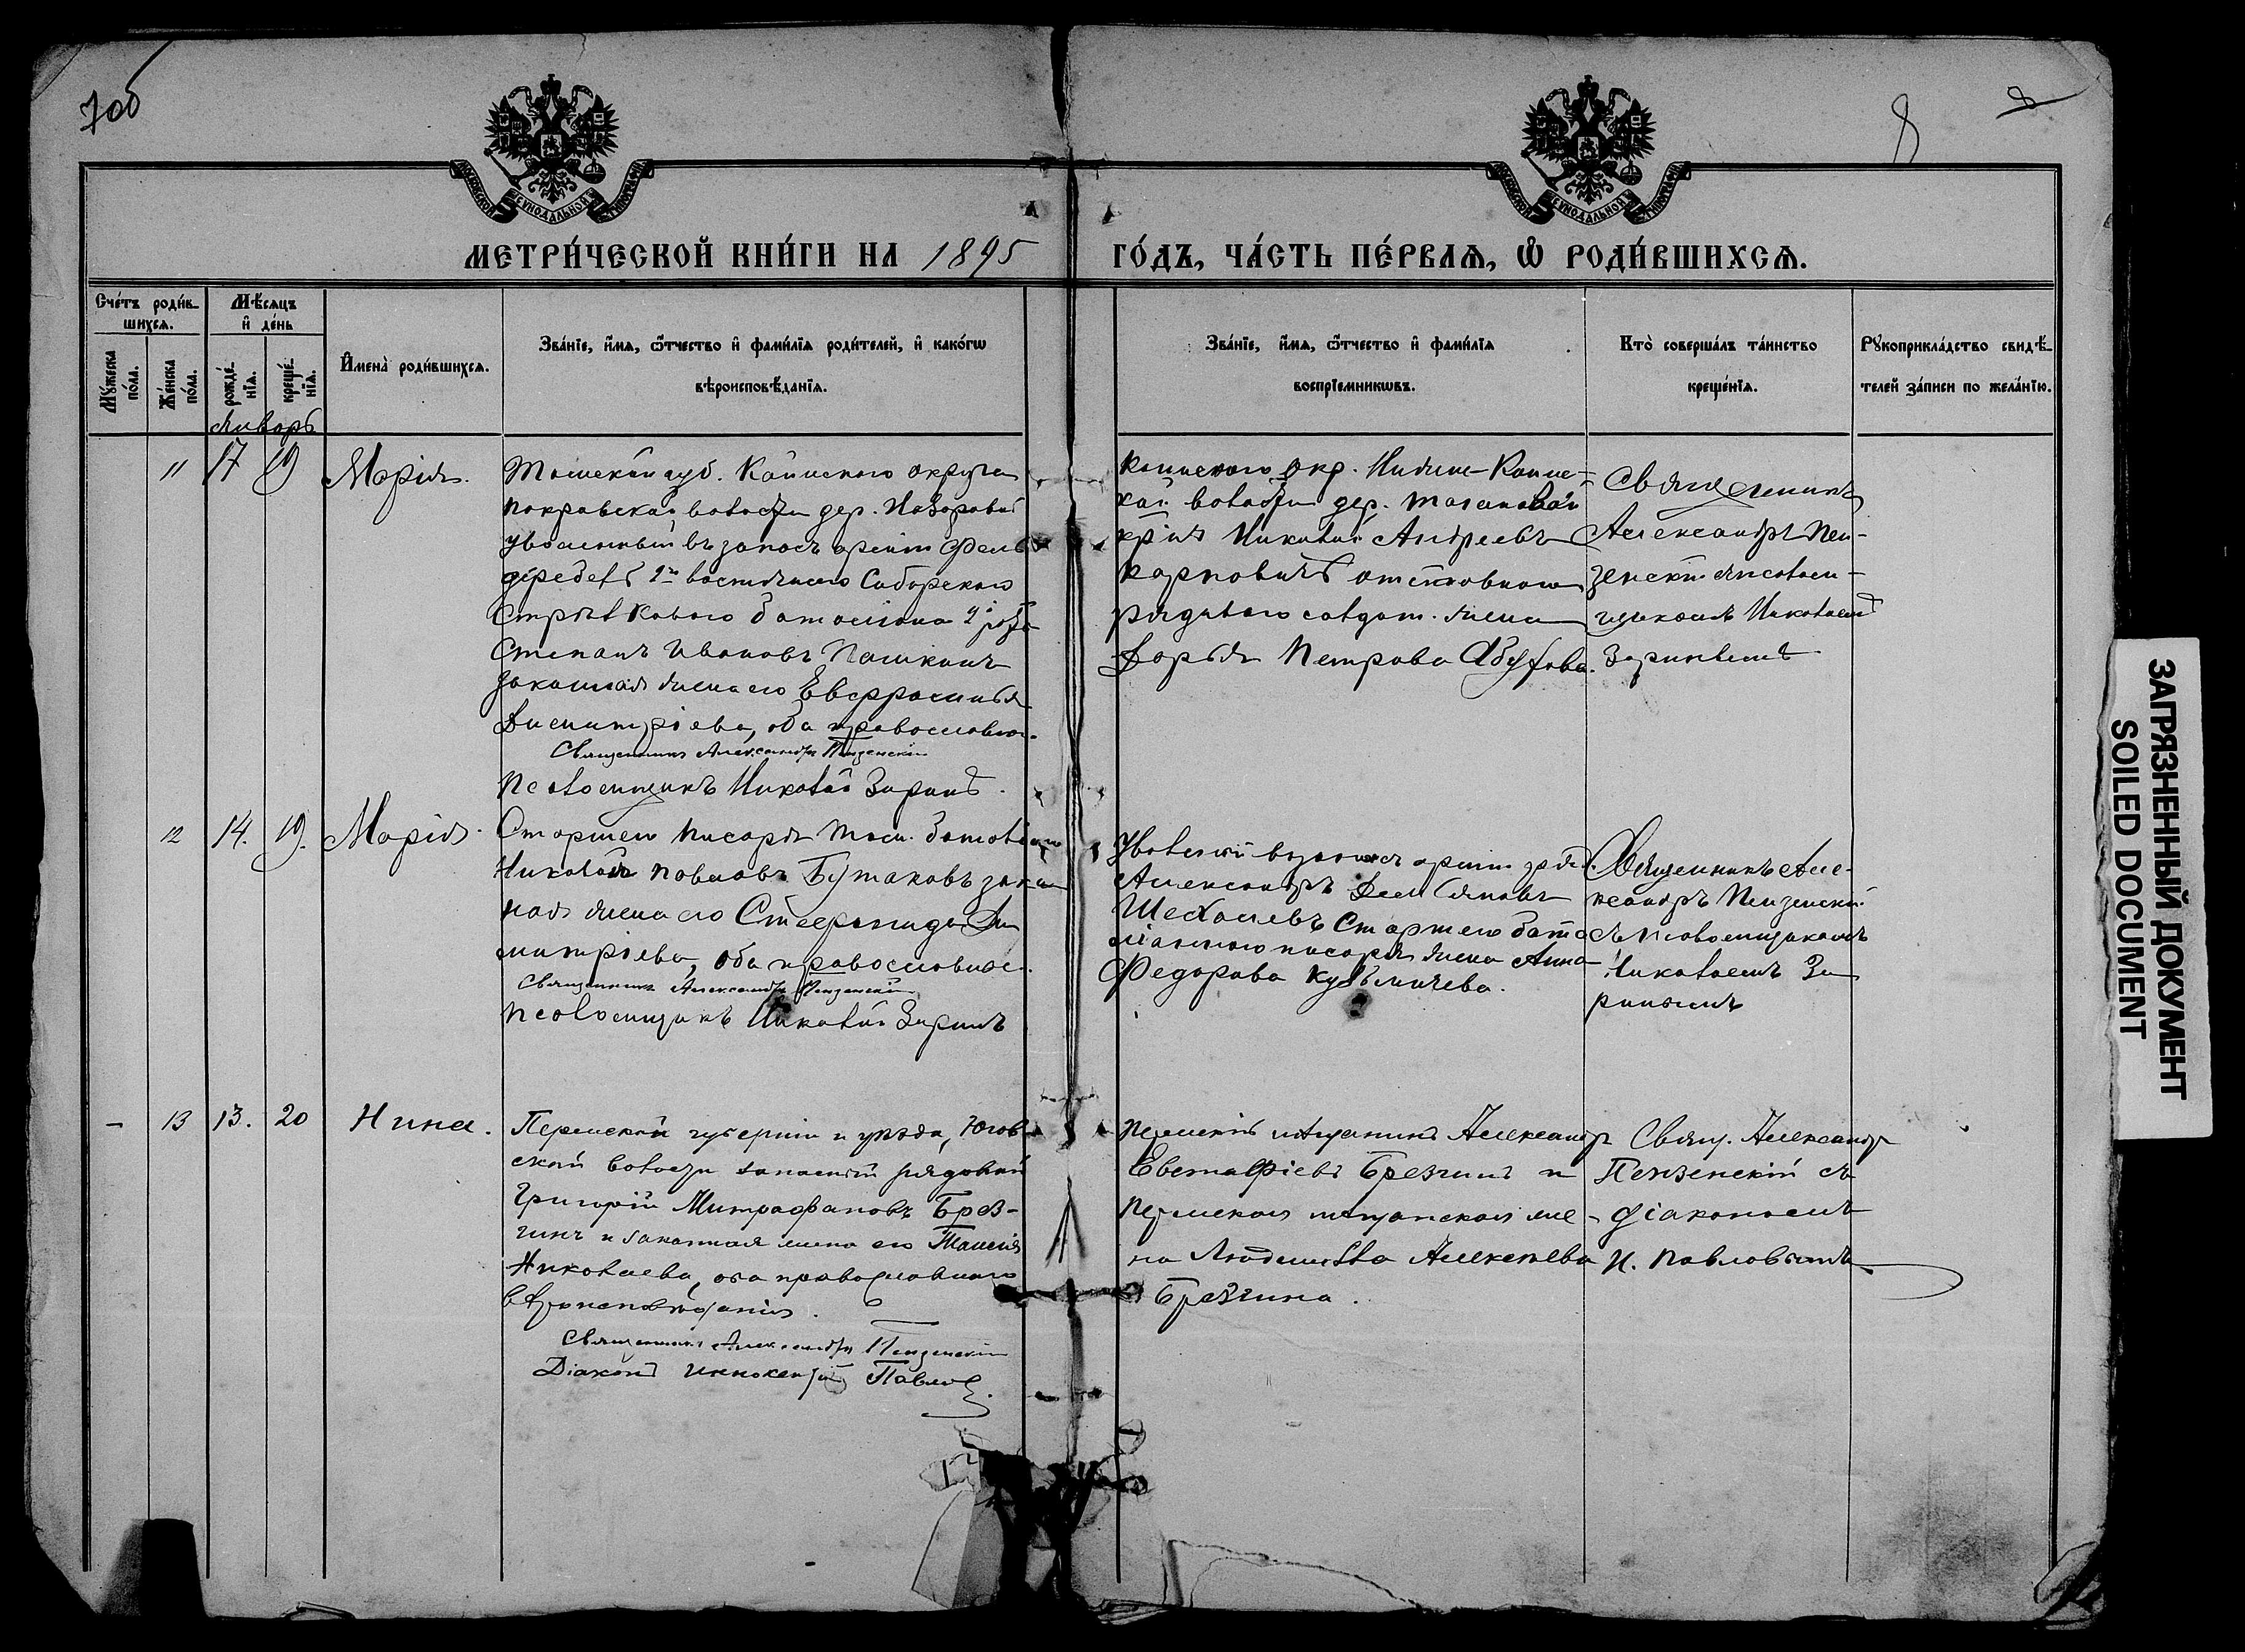 8
МЕТРИ́ЧЕСКОЙ КНИ́ГИ НА 1895 ГО́ДЪ, ЧА́СТЬ ПЕ́РВАѦ, Ѿ РОДИ́ВШИХСѦ.
Счётъ роди́в-
шихсѧ.
Мꙋ́жеска по́ла.
Же́нска по́ла.
Мѣ́сяцъ
и де́нь
рожде́-
нїѧ.
креще́-
нїѧ.
Имена̀ роди́вшихсѧ.
Зва́нїе, и́мѧ, ѻ́тчество и фами́лїѧ роди́телей, и како́гѡ
вѣроисповѣ́данїѧ.
Зва́нїе, и́мѧ, ѻ́тчество и фами́лїѧ
воспрїе́мникѡвъ.
Кто̀ соверша́лъ та́инство
креще́нїѧ.
Рꙋкоприкла́дство свидѣ́-
телей за́писи по жела́нїю.
Январь
11 17 19 Марія.
Томской губ. Каинскаго округа
Покровской волости дер.
уволенный въ запасъ арміи
Сибирскаго
Стрѣлковаго баталіона роты
Степанъ Ивановъ Пашкинъ
законная жена его Евфросинья
Димитріева, оба православные.
Священникъ Александръ Пензенскій
Псаломщикъ Николай Заринъ.
Каинскаго окр. Нижне-Каинс-
кой волости дер.
кр. Николай Андреевъ
Карповичъ отставнаго
рядоваго солдат. жена
Дарья Петрова
Священникъ
Александръ Пен-
зенскій съ псалом-
щикомъ Николаемъ
Заринымъ
12 14. 19. Марія.
Старшего писаря Том. баталіона
Николай Павловъ Бутаковъ закон
ная жена его Стефанида Ди
митріева, оба православные.
Священникъ Александръ Пензенскій
Псаломщикъ Николай Заринъ
Уволеный въ запасъ арміи ряд.
Александръ
Старшего бата
ліоннаго писаря жена Анна
Федорова Кузьмичева.
Священникъ Але-
ксандръ Пензенскій
съ псаломщикомъ
Николаемъ За
ринымъ
- 13 13. 20 Нина.
Пермской губерніи и уѣзда, Югов-
ской волости запасный рядовой
Григорій Митрофановъ Брез-
гинъ и законная жена его Таисія
Николаева, оба православнаго
вѣроисповѣданія.
Священникъ Александръ Пензенскій
Діаконъ Иннокентій Павловъ.
Пермскій мѣщанинъ Александр
Евстафіевъ Брезгинъ и
Пермская мѣщанская же-
на Людмилла Алексѣева
Брезгина.
Свящ. Александръ
Пензенскій съ
діакономъ
И. Павловымъ
ЗАГРЯЗНЕННЫЙ ДОКУМЕНТ
SOILED DOCUMENT